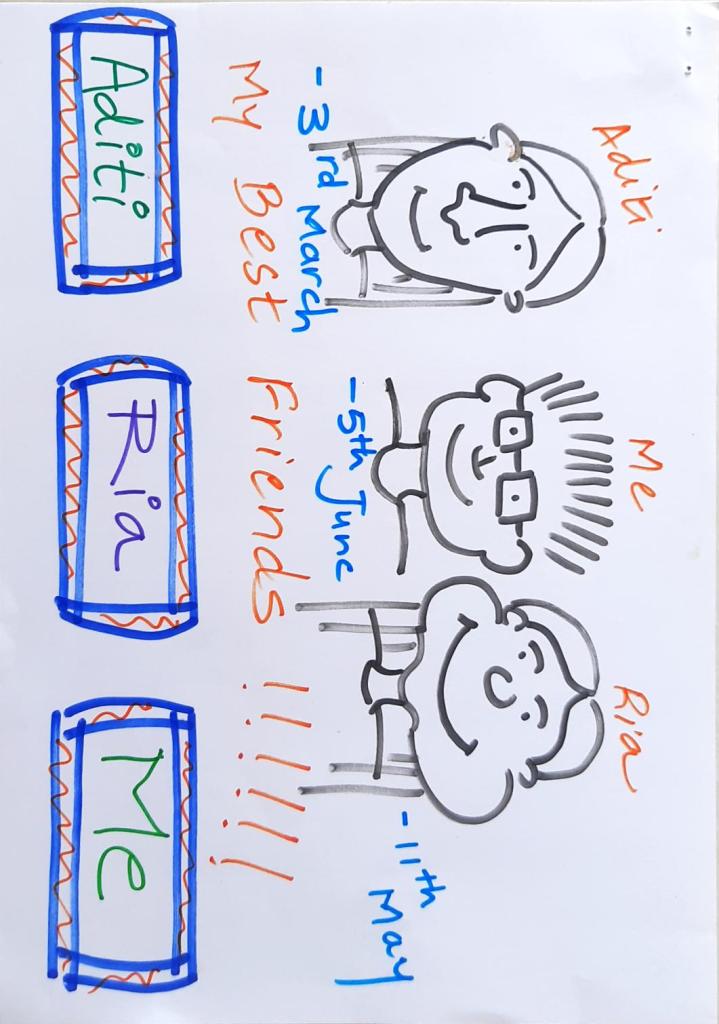 Aditi Me Ria
- 3rd March - 5th June - 11th May
My Best Friends !!!!!!
Aditi Ria Me